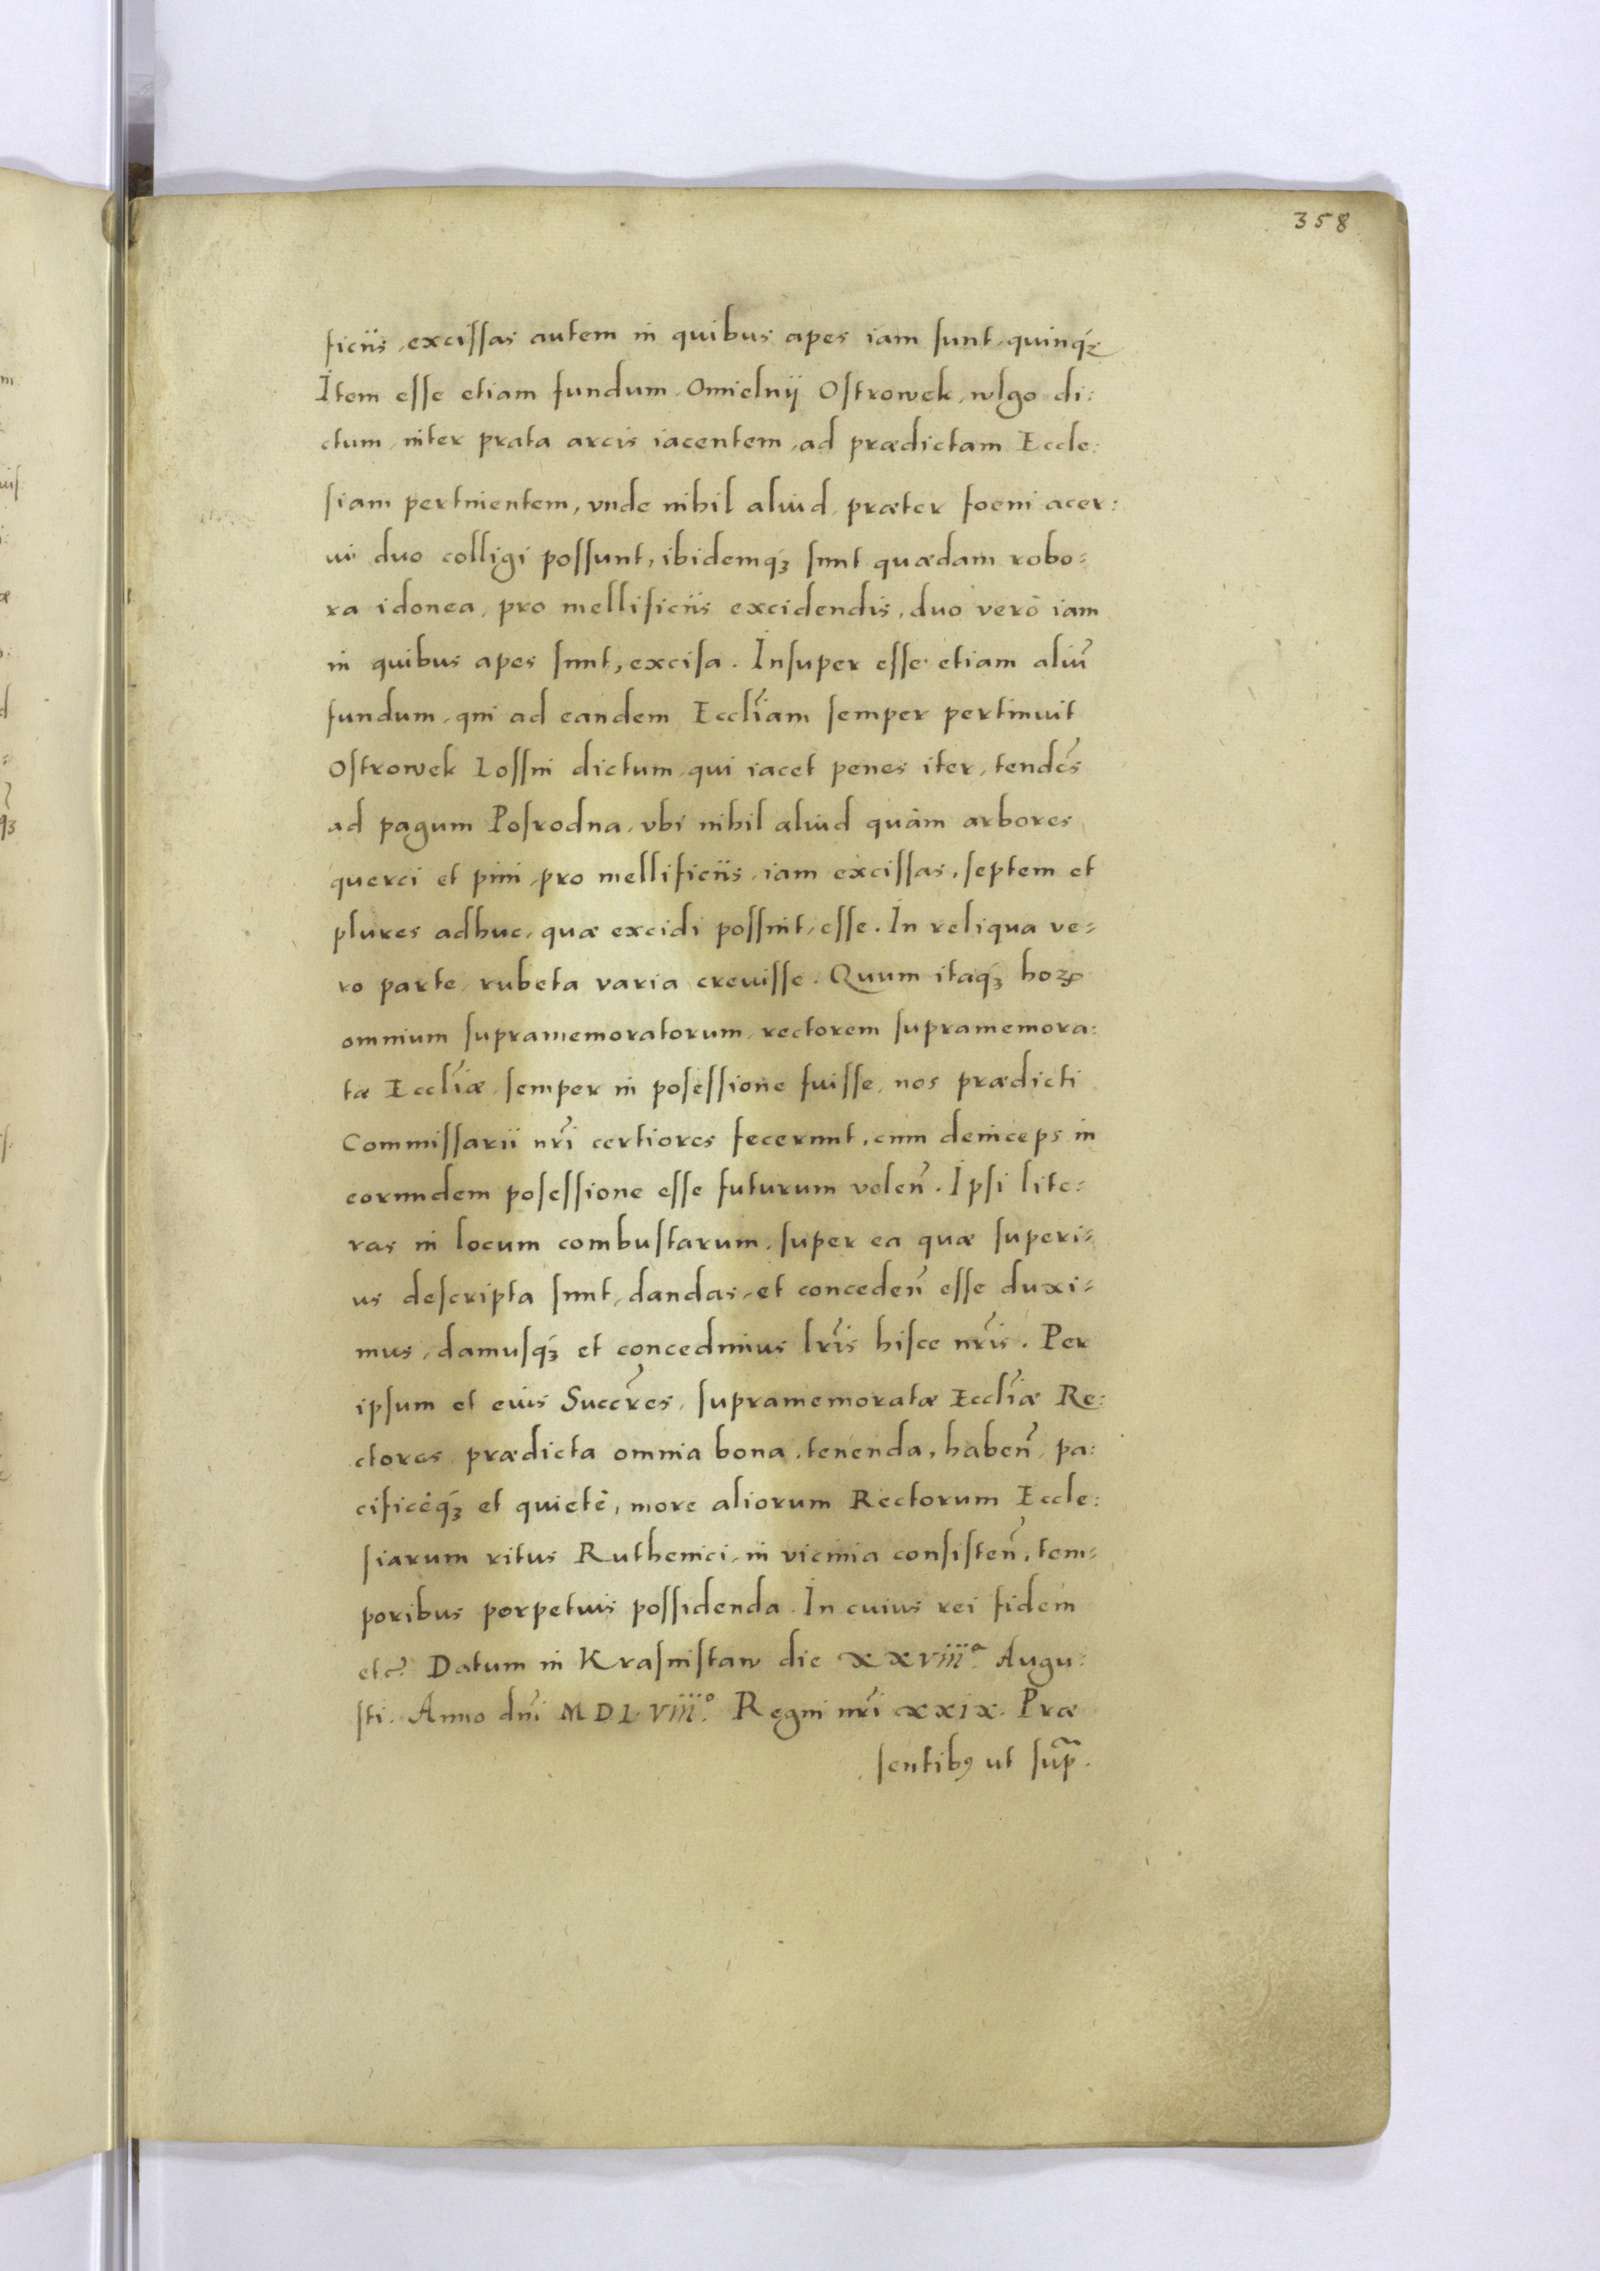 358
ficiis, excissas autem in quibus apes iam sunt, quinq́ꝫ
Item esse etiam fundum, Omielnÿ Ostrowek, wlgo di:
ctum, inter prata arcis iacentem, ad prædictam Eccle:
siam pertinentem, vnde nihil aliud, præter foeni acer:
ui duo colligi possunt, ibidemq́ꝫ sunt quædam robo:
ra idonea, pro mellificiis excidendis, duo verò iam
in quibus apes sunt, excisa. Insuper esse etiam aliũ
fundum, qui ad eandem Eccľiam semper pertinuit
Ostrowek Lossni dictum, qui iacet penes iter, tendẽs
ad pagum Posrodna, vbi nihil aliud quàm arbores
querci et pini, pro mellificiis, iam excissas, septem et
plures adhuc, quæ excidi possint, esse. In reliqua ve:
ro parte, rubeta varia creuisse. Quum itaq́ꝫ hoꝝ
omnium supramemoratorum, rectorem supramemora:
tæ Eccľiæ, semper in posessione fuisse, nos prædicti
Commissarii nr̃i certiores fecerunt, eum deinceps in
eorundem posessione esse futurum volen̄. Ipsi lite:
ras in locum combustarum, super ea quæ superi:
us descripta sunt, dandas, et conceden̄ esse duxi:
mus, damusq́ꝫ et concedimus lr̃is hisce nr̃is. Per
ipsum et eius Succr̃es, supramemoratæ Eccľiæ Re:
ctores prædicta omnia bona, tenenda, haben̄, pa:
cificèq́ꝫ et quietè, more aliorum Rectorum Eccle:
siarum ritus Ruthenici, in vicinia consisten̄, tem:
poribus perpetuis possidenda. In cuius rei fidem
etc̃. Datum in Krasnistaw die XXVIIIᵃ. Augu:
sti. Anno dn̄i MDLVIIIº. Regni nr̃i XXIX. Præ
sentibꝯ ut sup̃.